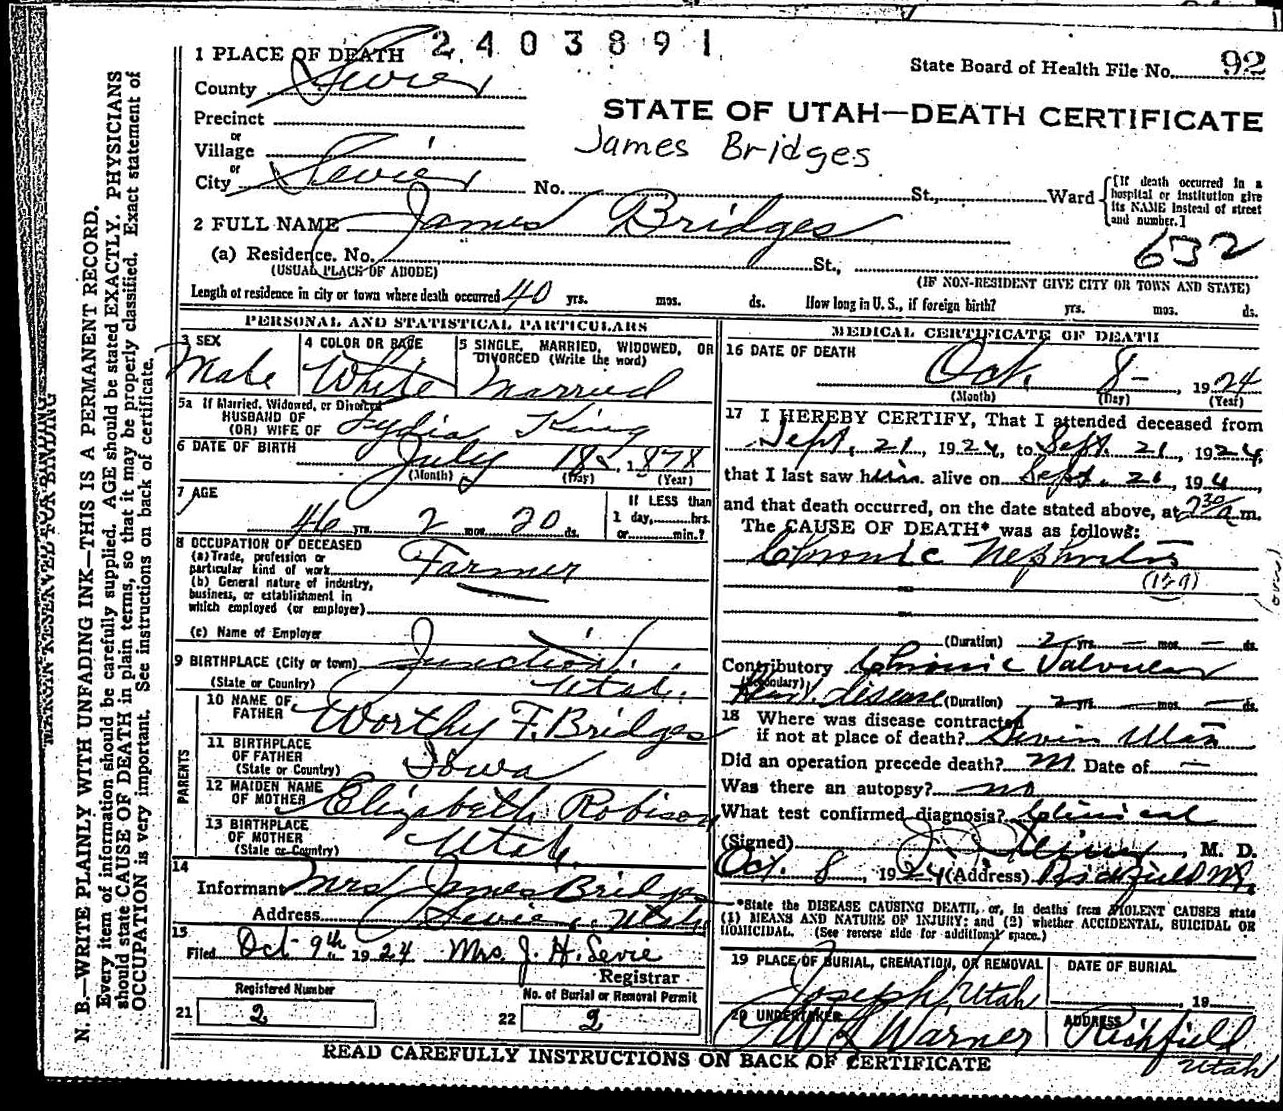 2403891
1 PLACE OF DEATH
State Board of Health File No. 92
County Sevier
STATE OF UTAH—DEATH CERTIFICATE
Precinct
or
Village
James Bridges
or
City Sevier No. St., Ward
[If death occurred in a
hospital or institution give
its NAME instead of street
and number.]
2 FULL NAME James Bridges
632
(a) Residence. No. St.,
(USUAL PLACE OF ABODE)
(IF NON-RESIDENT GIVE CITY OR TOWN AND STATE)
Length of residence in city or town where death occurred 40 yrs. mos. ds. How long in U. S., if foreign birth? yrs. mos. ds.
PERSONAL AND STATISTICAL PARTICULARS
3 SEX
Male
4 COLOR OR RACE
White
5 SINGLE, MARRIED, WIDOWED, OR
DIVORCED (Write the word)
Married
5a If Married, Widowed, or Divorced
HUSBAND OF
(OR) WIFE OF Lydia King
6 DATE OF BIRTH July 18, 1878
(Month) (Day) (Year)
7 AGE
46 yrs. 2 mos. 20 ds.
If LESS than
1 day, hrs.
or min.?
8 OCCUPATION OF DECEASED
(a) Trade, profession or
particular kind of work Farmer
(b) General nature of industry,
business, or establishment in
which employed (or employer)
(c) Name of Employer
9 BIRTHPLACE (City or town) Junction
(State or Country) Utah.
PARENTS
10 NAME OF
FATHER Worthy F. Bridges
11 BIRTHPLACE
OF FATHER
(State or Country) Iowa
12 MAIDEN NAME
OF MOTHER Elizabeth Robison
13 BIRTHPLACE
OF MOTHER
(State or Country) Utah.
14
Informant Mrs James Bridges
Address Sevier, Utah.
15
Filed Oct 9th 1924 Mrs. J. H. Levie
Registrar
Registered Number
21 2
No. of Burial or Removal Permit
22 2
MEDICAL CERTIFICATE OF DEATH
16 DATE OF DEATH
Oct. 8- 1924
(Month) (Day) (Year)
17 I HEREBY CERTIFY, That I attended deceased from
Sept. 21, 1924, to Sept. 21, 1924.
that I last saw him alive on Sept. 21, 194,
and that death occurred, on the date stated above, at 730/a m.
The CAUSE OF DEATH* was as follows:
Chronic Nephritis
(129)
(Duration) 2 yrs. — mos. — ds.
Contributory Chronic Valvular
(Secondary)
Heart disease (Duration) 2 yrs. — mos. — ds.
18 Where was disease contracted
if not at place of death? Sevier Utah
Did an operation precede death? Date of —
Was there an autopsy? no
What test confirmed diagnosis? Clinical
(Signed) , M. D.
Oct. 8, 1924 (Address) Richfield
*State the DISEASE CAUSING DEATH, or, in deaths from VIOLENT CAUSES state
(1) MEANS AND NATURE OF INJURY; and (2) whether ACCIDENTAL, SUICIDAL OR
HOMICIDAL. (See reverse side for additional space.)
19 PLACE OF BURIAL, CREMATION, OR REMOVAL
Joseph, Utah
DATE OF BURIAL
, 19
20 UNDERTAKER
Warner
ADDRESS
Richfield
Utah
READ CAREFULLY INSTRUCTIONS ON BACK OF CERTIFICATE
MARGIN RESERVED FOR BINDING
N. B.—WRITE PLAINLY WITH UNFADING INK—THIS IS A PERMANENT RECORD.
Every item of information should be carefully supplied. AGE should be stated EXACTLY. PHYSICIANS
should state CAUSE OF DEATH in plain terms, so that it may be properly classified. Exact statement of
OCCUPATION is very important. See instructions on back of certificate.